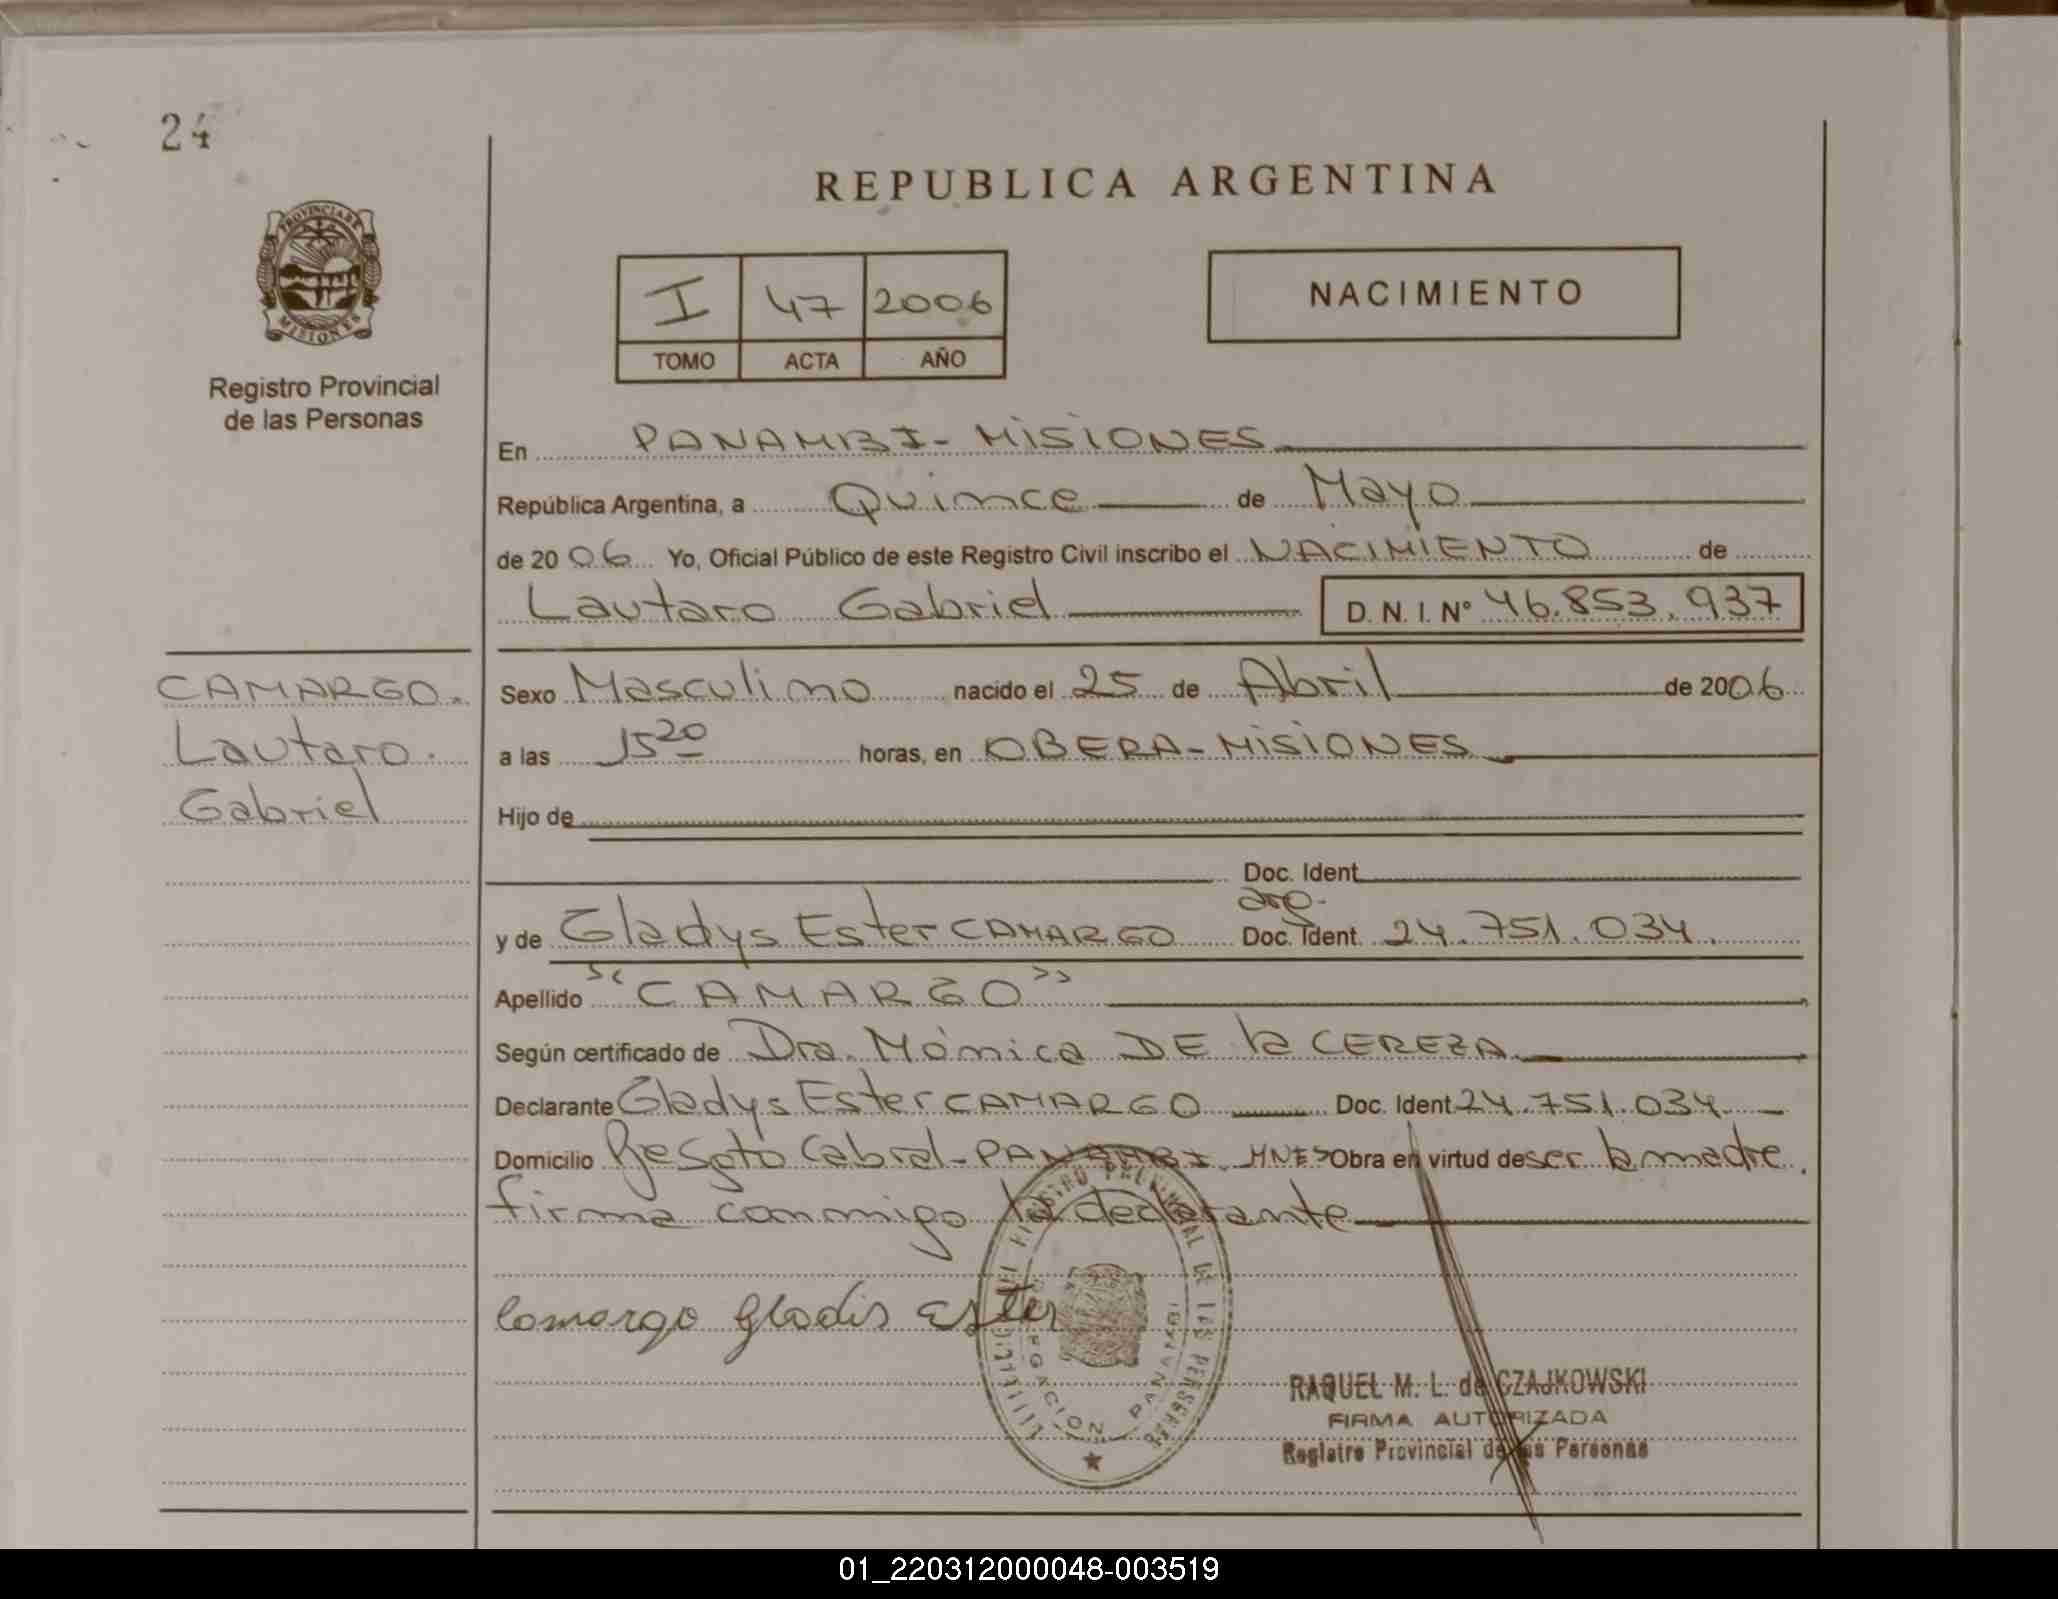 24
REPUBLICA ARGENTINA
PROVINCIA DE
MISIONES
Registro Provincial
de las Personas
I 47 2006
TOMO ACTA AÑO
NACIMIENTO
En PANAMBI - MISIONES
República Argentina, a Quince de Mayo
de 2006 Yo, Oficial Público de este Registro Civil inscribo el NACIMIENTO de
Lautaro Gabriel D. N. I. Nº 46.853.937
CAMARGO.
Lautaro.
Gabriel
Sexo Masculino nacido el 25 de Abril de 2006
a las 15 20 horas, en OBERA - MISIONES
Hijo de
Doc. Ident
y de Gladys Ester CAMARGO arg. Doc. Ident. 24.751.034.
Apellido "CAMARGO"
Según certificado de Dra. Mónica DE la CEREZA
Declarante Gladys Ester CAMARGO Doc. Ident 24.751.034
Domicilio Cabral - PANAMBI. MNES Obra en virtud de ser la madre.
firma conmigo la declarante
Camargo Gladis Ester
REGISTRO PROVINCIAL DE LAS PERSONAS
DELEGACION PANAMBI
RAQUEL M. L. de CZAJKOWSKI
FIRMA AUTORIZADA
Registro Provincial de las Personas
01_220312000048-003519